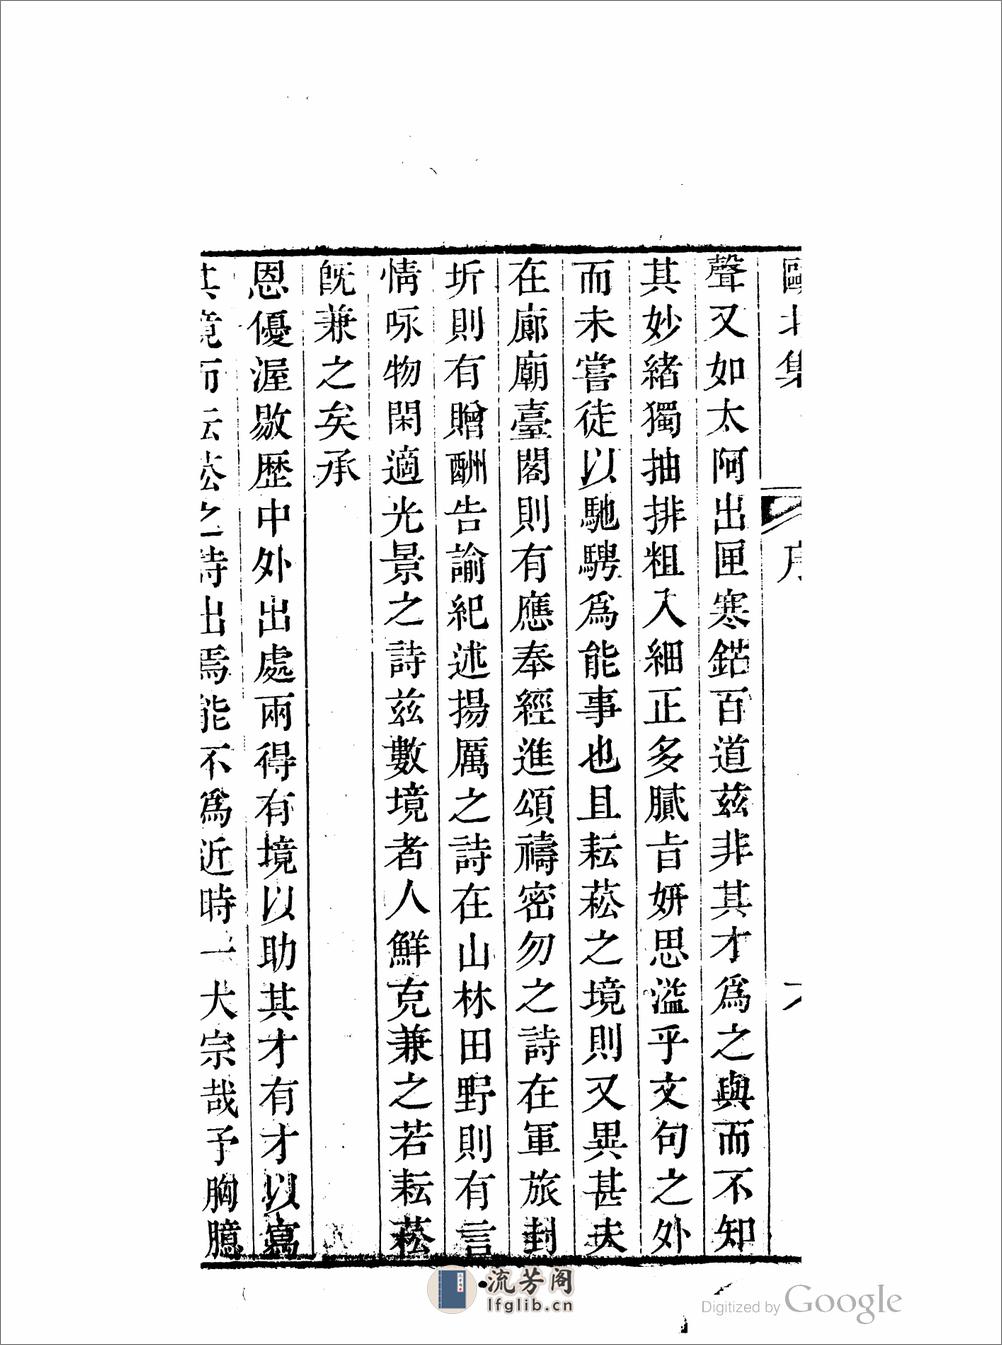 甌北集 序 六
聲又如太阿出匣寒鋩百道茲非其才爲之與而不知
其妙緒獨抽排粗入細正多膩旨妍思溢乎文句之外
而未嘗徒以馳騁爲能事也且耘菘之境則又異甚夫
在廊廟臺閣則有應奉經進頌禱密勿之詩在軍旅封
圻則有贈酬告諭紀述揚厲之詩在山林田野則有言
情咏物閑適光景之詩茲數境者人鮮克兼之若耘菘
旣兼之矣承
恩優渥敭歴中外出處兩得有境以助其才有才以寫
其境而耘菘之詩出焉能不爲近時一大宗哉予胸臆
流芳阁
lfglib.cn
Digitized by Google